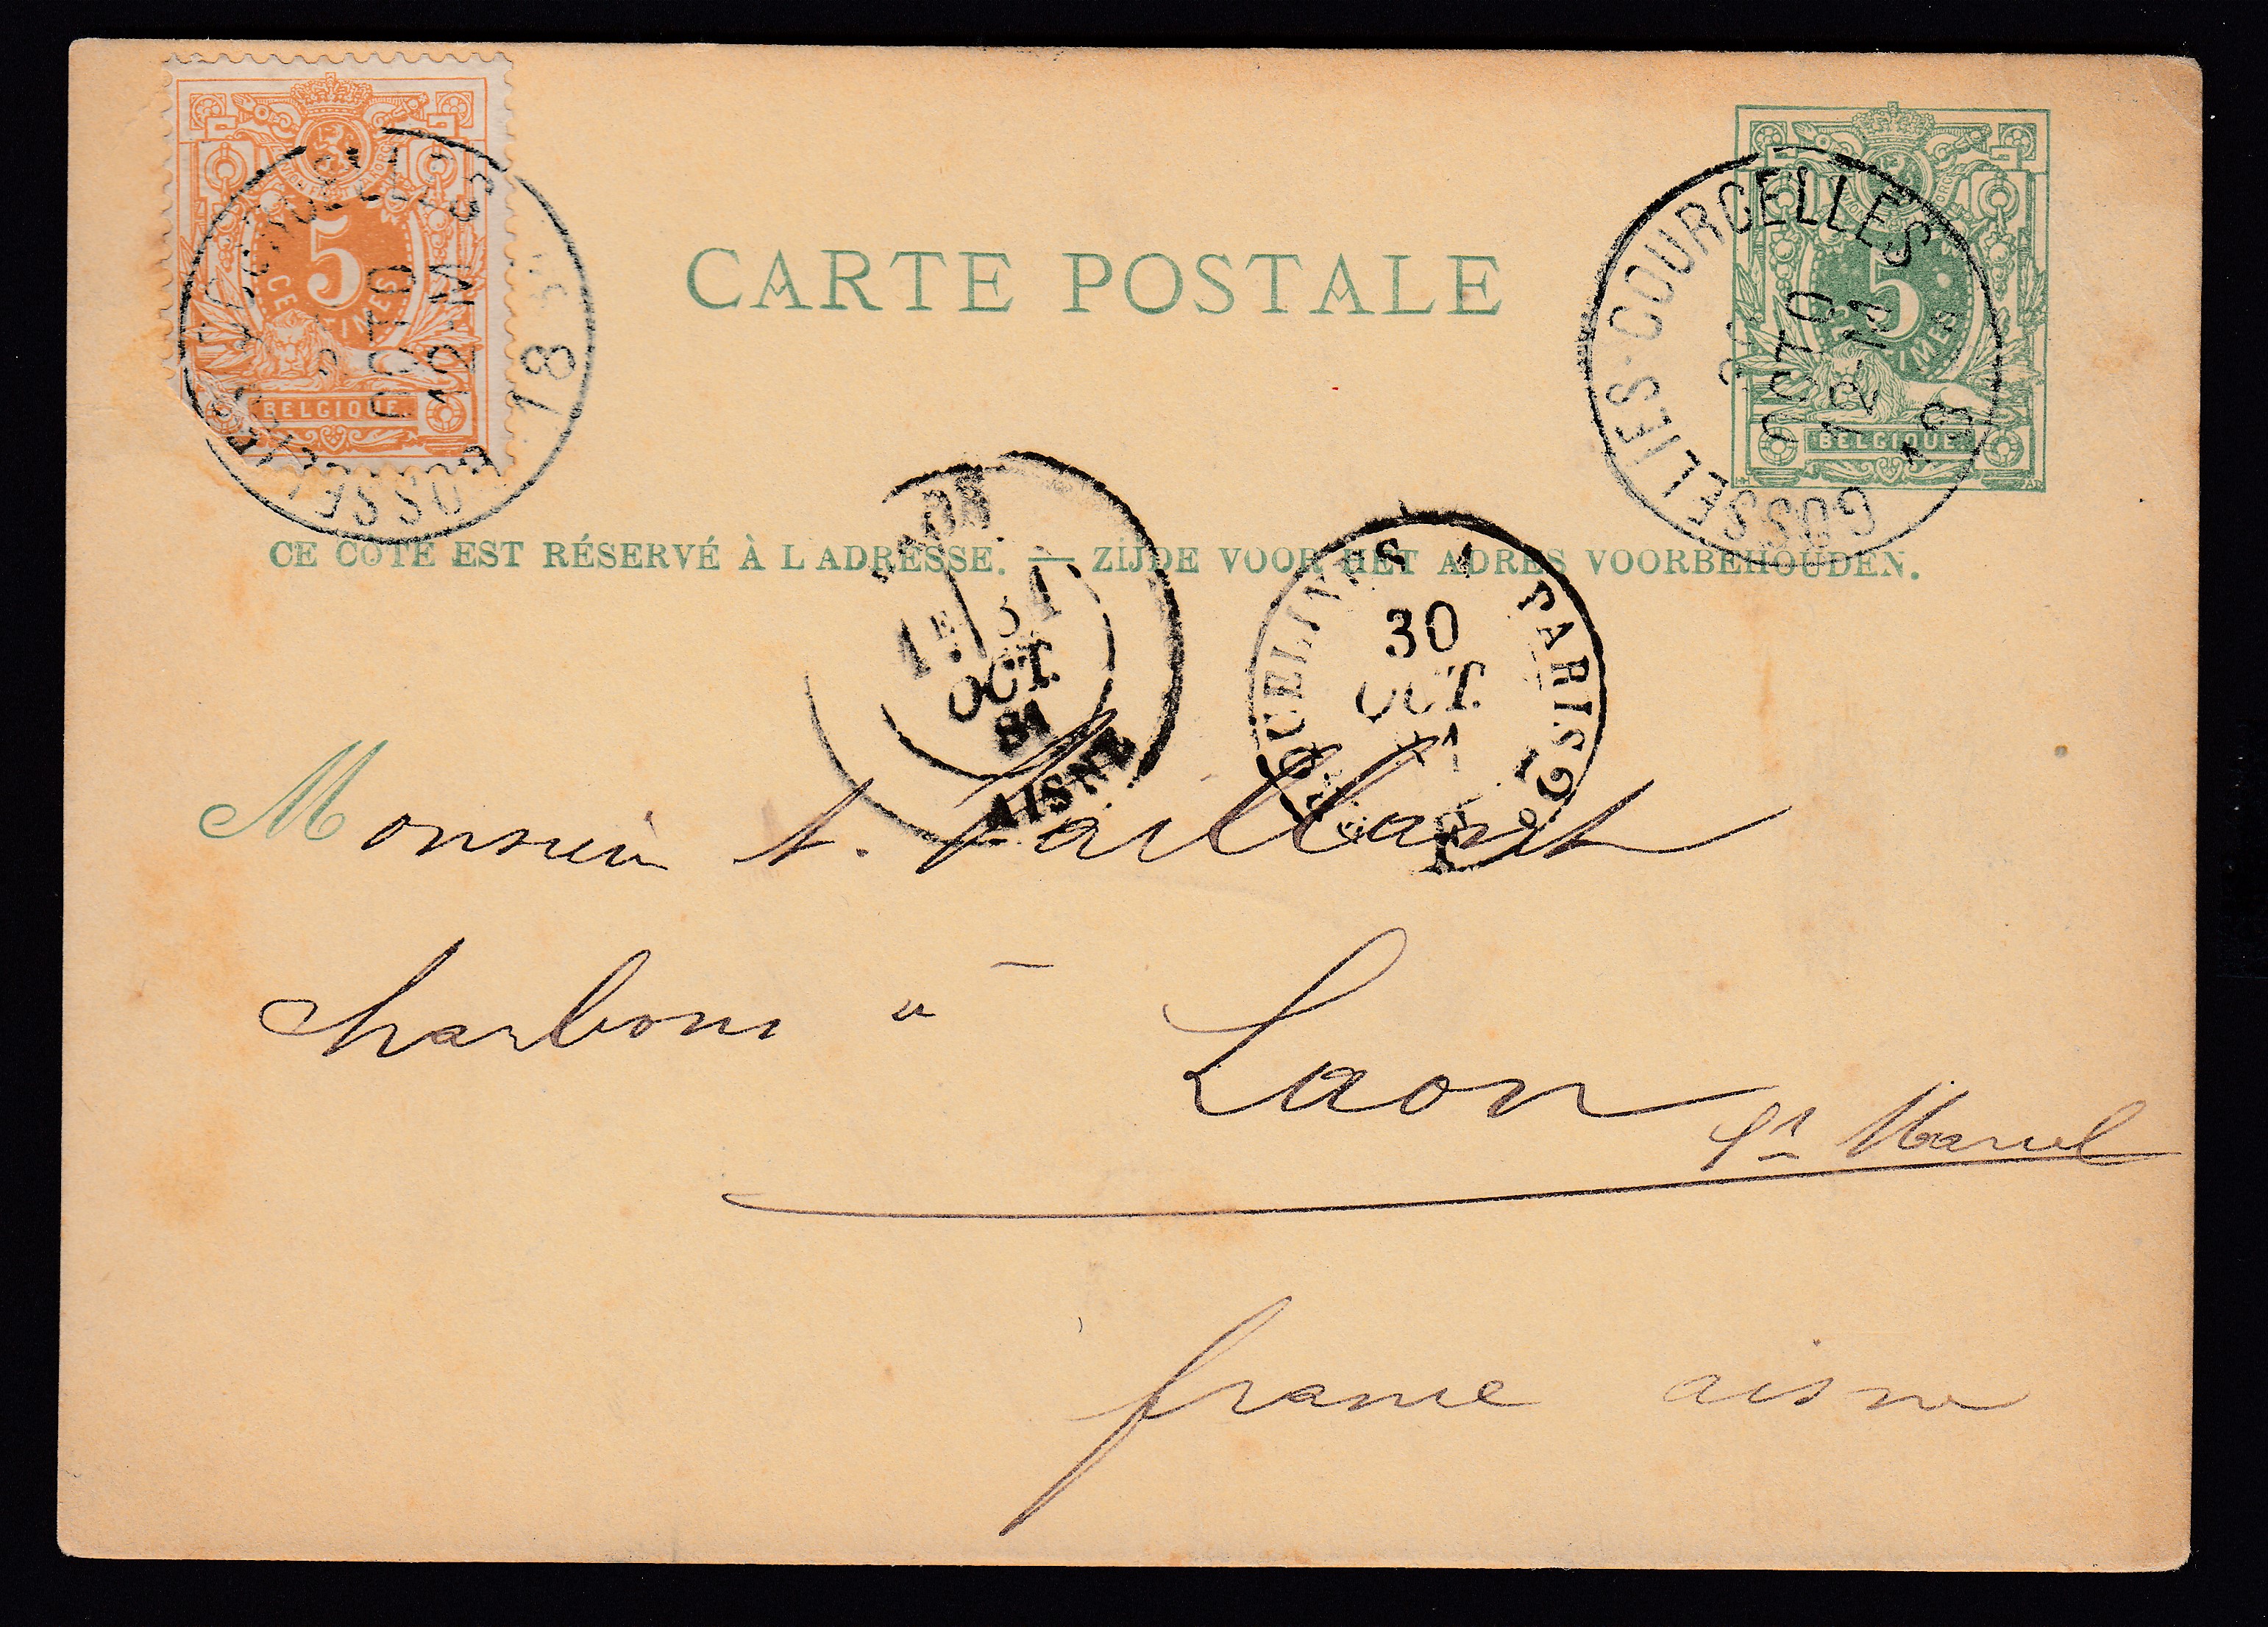 5
CENTIMES
BELGIQUE
GOSSELIES-COURCELLES
OCTO
12-M
18
CARTE POSTALE
5
CENTIMES
BELGIQUE
GOSSELIES-COURCELLES
OCTO
12-M
18
CE COTÉ EST RÉSERVÉ À L'ADRESSE. — ZIJDE VOOR HET ADRES VOORBEHOUDEN.
LAON
1E 31
OCT.
81
AISNE
ERQUELINES A PARIS
30
OCT.
81
Monsieur A. Vaillant
charbons à Laon
St Marcel
france aisne